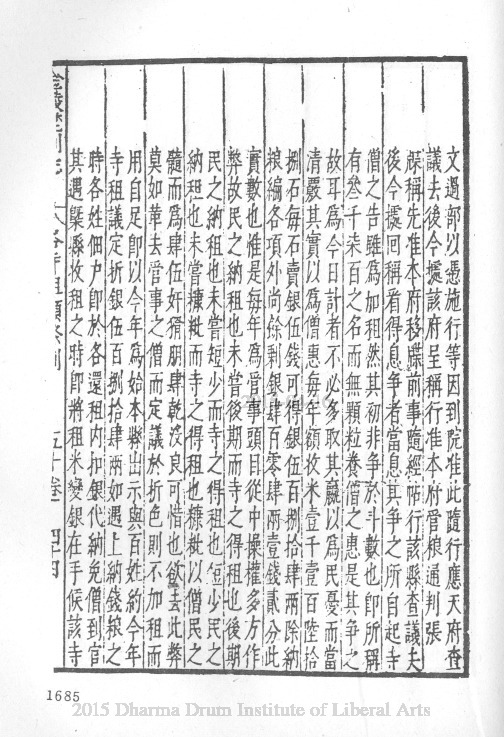 文過部以憑施行等因到院准此隨行應天府查
議去後今據該府呈稱行准本府管粮通判張
牒稱先准本府移牒前事隨經帖行該縣查議夫
後今據回稱看得息爭者當息其爭之所自起寺
僧之告雖為加租然其初非爭於斗數也即所稱
有叅千柒百之名而無顆粒養僧之惠是其爭之
故耳為今日計者不必多取其嬴以為民憂而當
清嚴其實以為僧惠每年額收米壹千壹百陸拾
捌石每石賣銀伍錢可得銀伍百捌拾肆兩除納
粮編各項外尚餘剩銀肆百零肆兩壹錢貳分此
實數也惟是每年為管事頭目從中操權多方作
弊故民之納租也未嘗後期而寺之得租也後期
民之納租也未嘗短少而寺之得租也短少民之
納租也未嘗糠粃而寺之得租也糠粃以僧民之
髓而為肆伍奸猾朋肆乾沒良可惜也欲去此弊
莫如革去管事之僧而定議於折色則不加租而
用自足即以今年為始本縣出示與百姓約今年
寺租議定折銀伍百捌拾肆兩如遇上納錢粮之
時各姓佃户即於各還租內扣銀代納免僧到官
其遇槩縣收租之時即將租米變銀在手候該寺
金陵梵剎志 八各寺租額條例 五十卷 四十四
1685
2015 Dharma Drum Institute of Liberal Arts